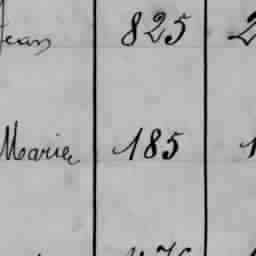 Jean 825 2
Marie 185 1